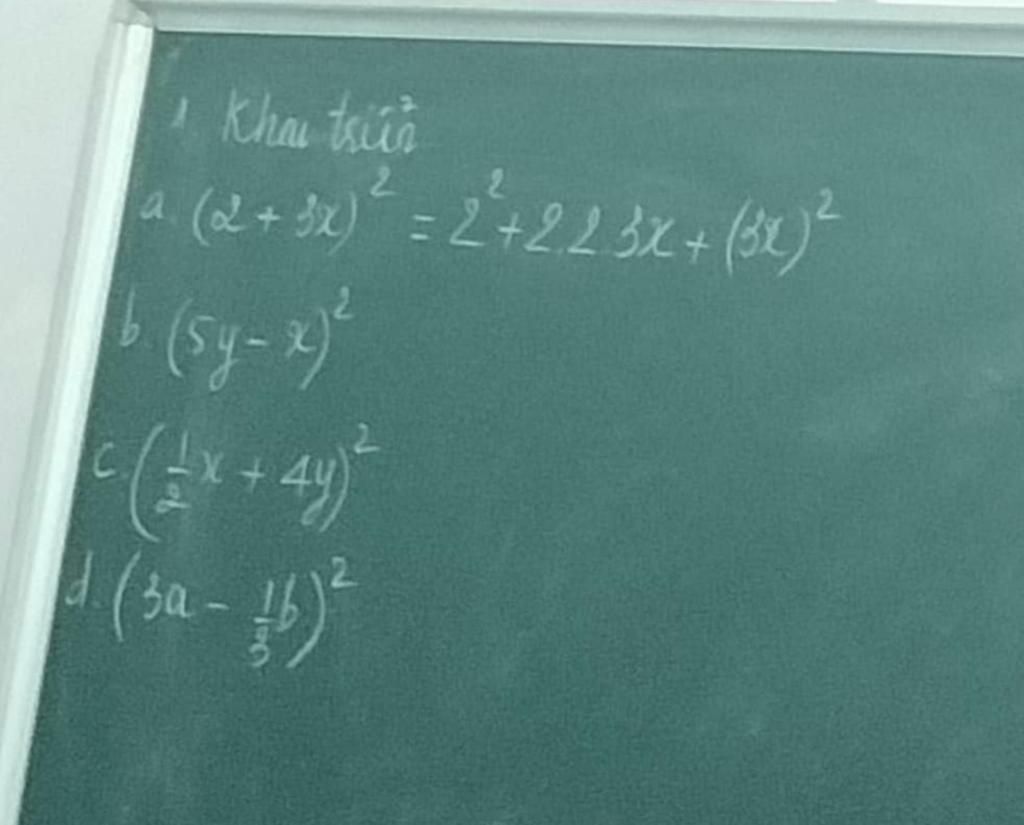 1. Khai triển
a. (2 + 3x)² = 2² + 2.2.3x + (3x)²
b. (5y - x)²
c. (1/2 x + 4y)²
d. (3a - 1/3 b)²